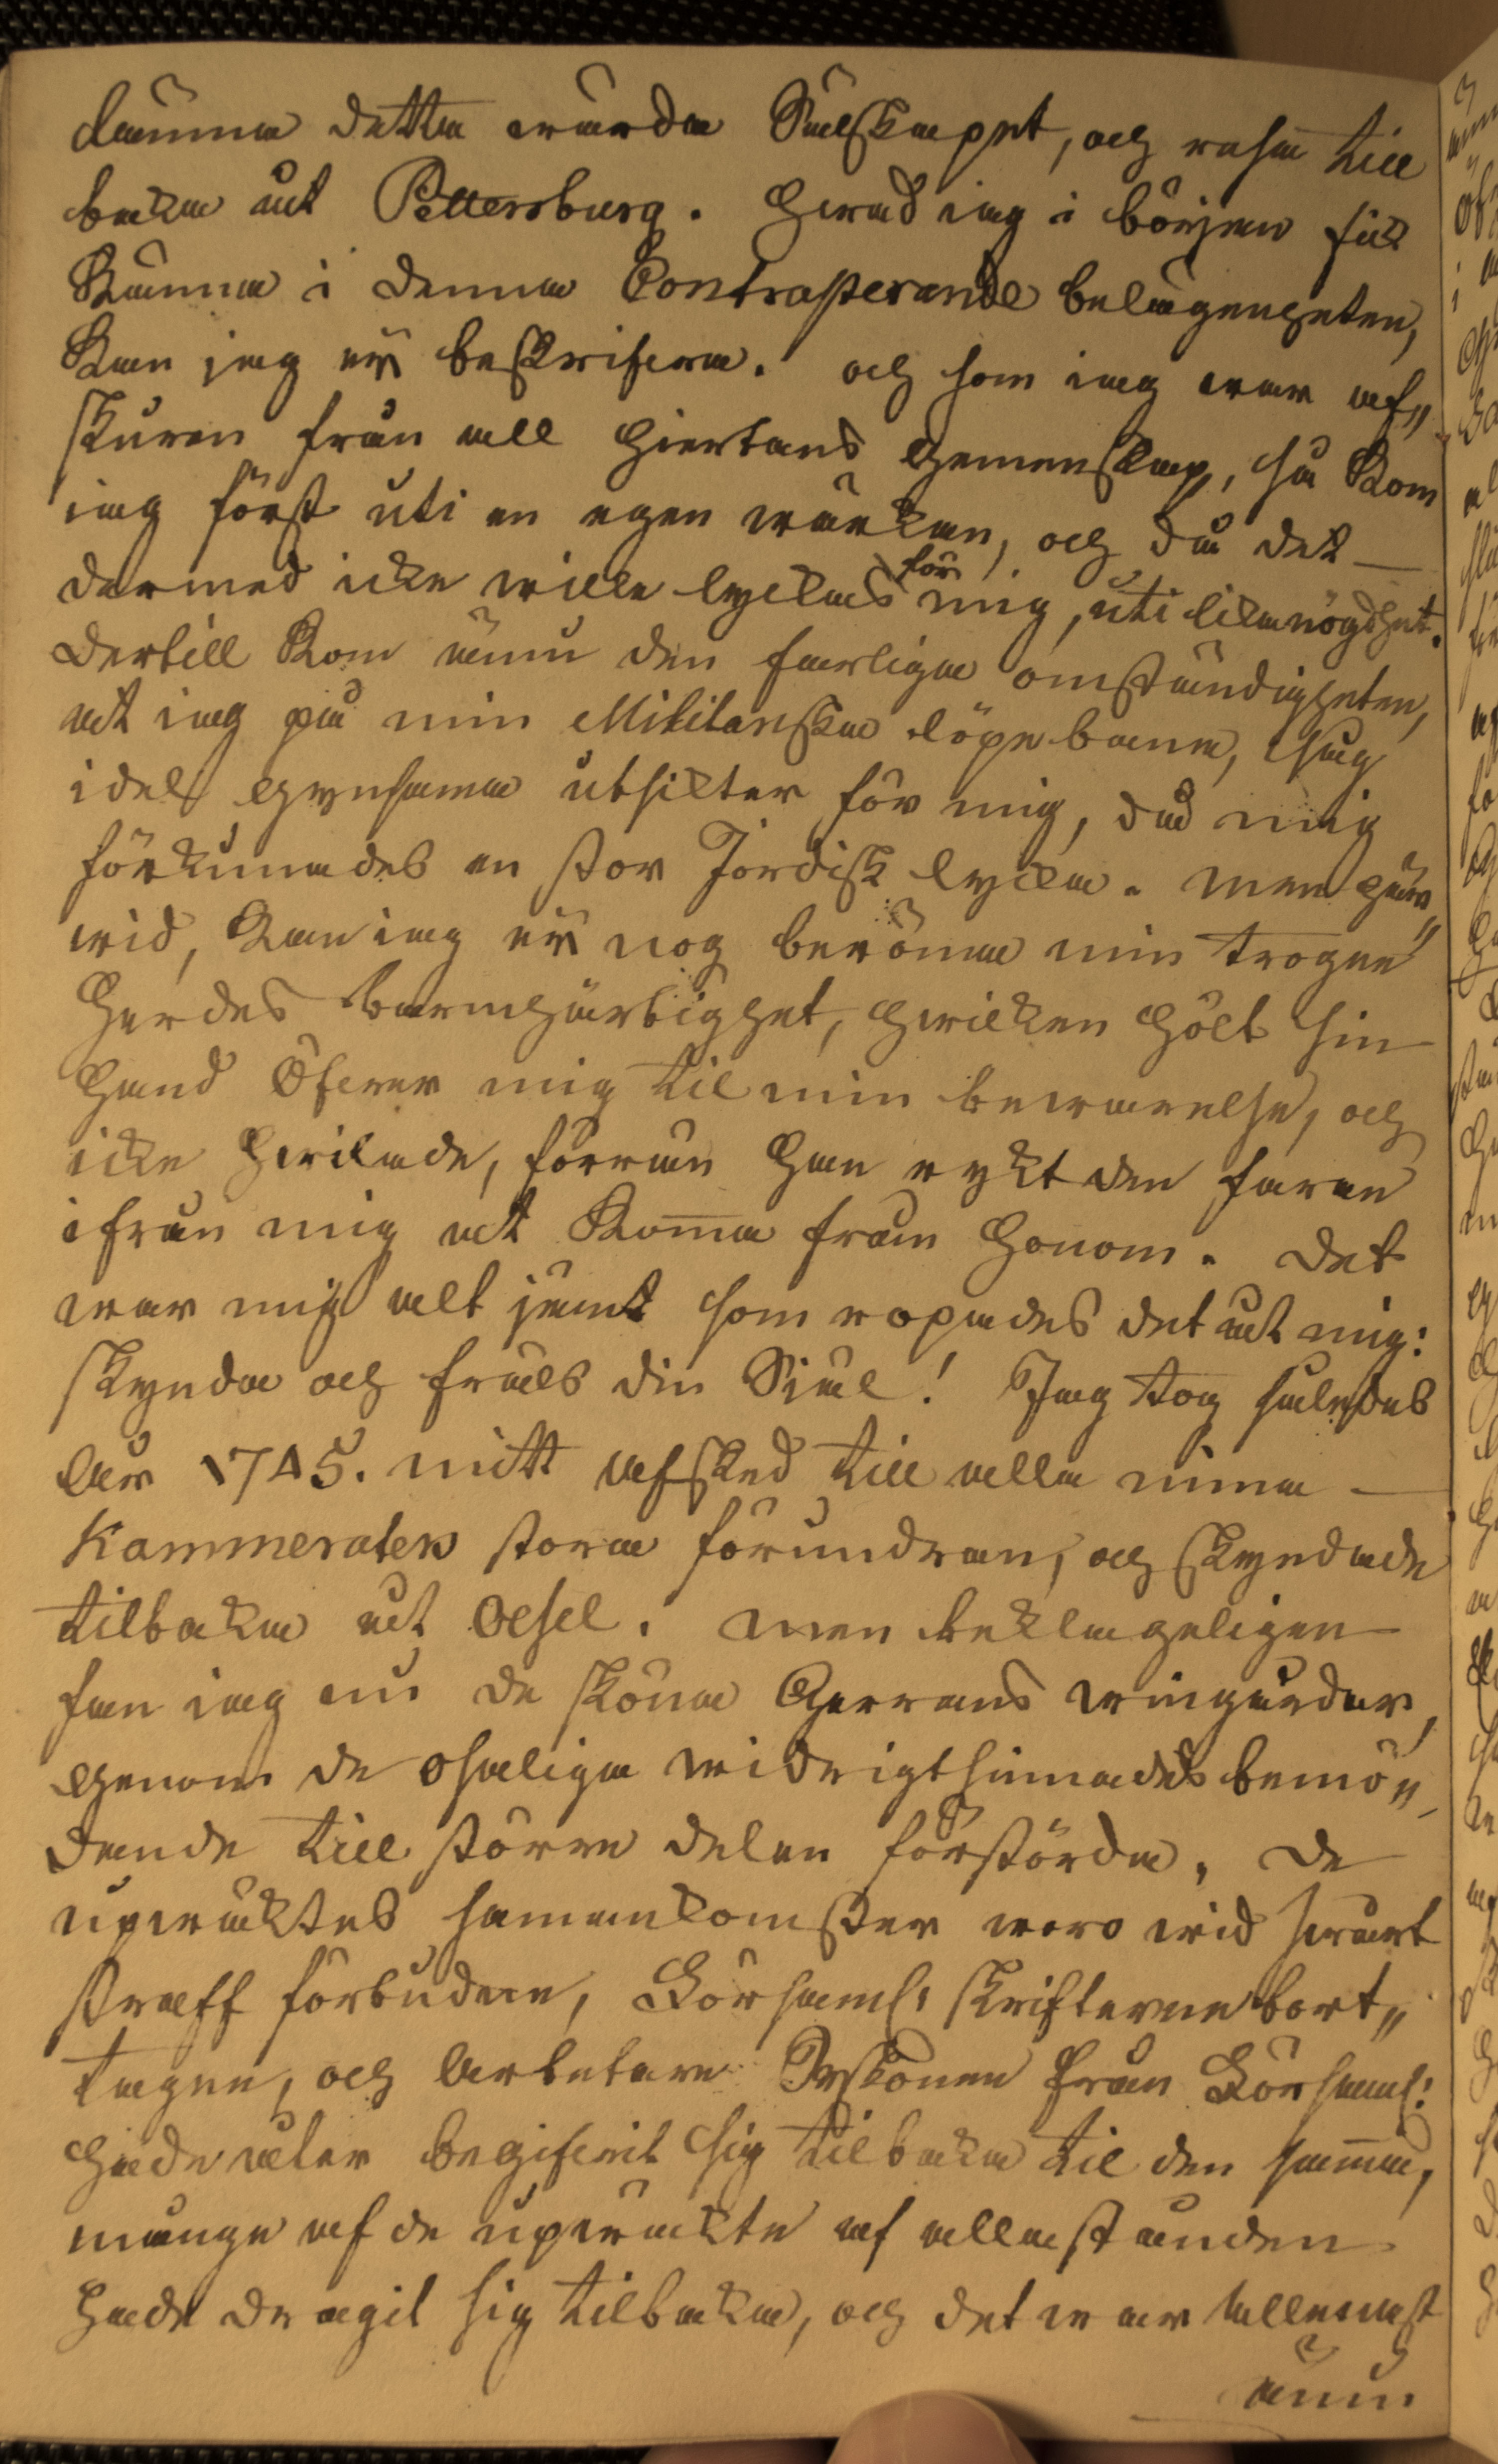 lämna detta wärda Sälskapet, och resa till
baka åt Pettersburg. Hwad iag i början fick
Känna i denna Contrasterande belägenheten,
Kan jag ej beskrifwa. och som iag war af„
skuren från all Hiertans Gemenskap, så Kom
iag först uti en egen wärkan, och då det —
dermed icke wille lyckas för mig, uti likenögdhet.
Dertill Kom ännu den farliga omständigheten,
at iag på min Militariska löpebana, såg
idel gynsamma utsikter för mig, då mig
förkunnades en stor Jordisk lycka. men här„
wid, Kan iag ej nog berömma min trogne
Herdes barmhärtighet, hwilken hölt sin
Hand Öfwer mig til min bewarelse, och
icke Hwilade, förrän Han rykt den faran
ifrån mig at Komma från Honom. Det
war mig alt jämt som ropades det åt mig:
Skynda och fräls din Siäl! Jag tog således
År 1745. mitt afsked till alla mina —
Kammeraters stora förundran, och skyndade
tilbaka åt Oesel. men beklageligen
fan iag nu de sköna Herrans wingårdar,
genom de osaliga widrigtsinnades bemö„
dande till större delen förstörda. De
upwäktes sammankomster woro wid swårt
straff förbudne, Börsaml: skrifterne bort„
tagne, och Arbetare Personen från Börsaml:
Hade åter begifwit sig tilbaka til den samma,
många af de upwäckte af alla stånden
Hade dragit sig tilbaka, och det war allenast
ännu